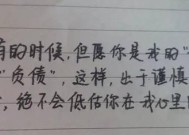 的时候，但愿你是我的“
“负债” 这样，出于谨慎
，绝不会低估你在我心里